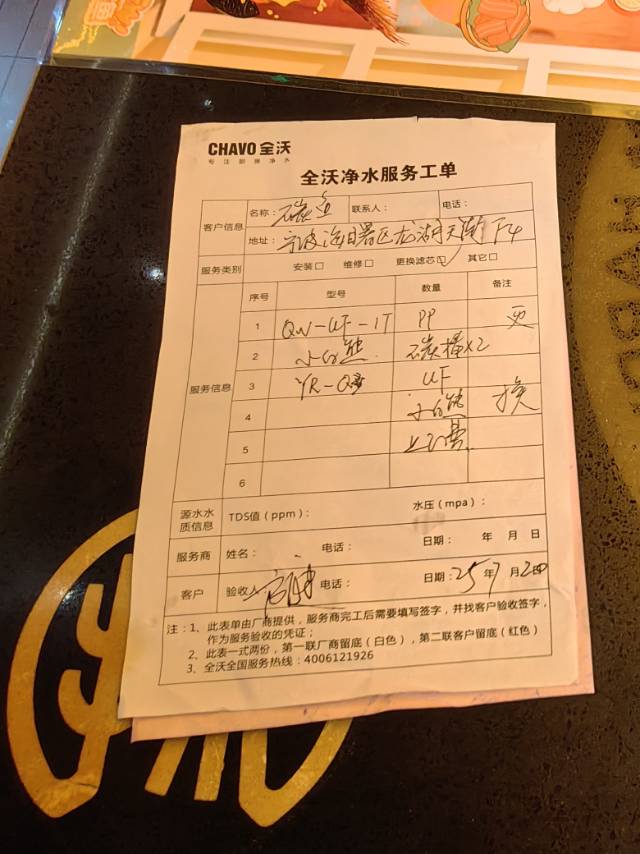 CHAVO 全沃
专注厨房净水
全沃净水服务工单
客户信息 名称: 碳鱼 联系人: 电话:
地址: 宁波海曙区龙湖天街 F4
服务类别 安装□ 维修□ 更换滤芯□ 其它□
服务信息 序号 型号 数量 备注
1 QW-UF-1T PP 更
2 小白熊 碳棒×2
3 YR-Q UF
4 小白熊 换
5 上门费
6
源水水质信息 TDS值（ppm）: 水压（mpa）:
服务商 姓名: 电话: 日期: 年 月 日
客户 验收人: 电话: 日期: 25年7月2日
注:1、此表单由厂商提供，服务商完工后需要填写签字，并找客户验收签字，
作为服务验收的凭证；
2、此表一式两份，第一联厂商留底（白色），第二联客户留底（红色）
3、全沃全国服务热线:4006121926